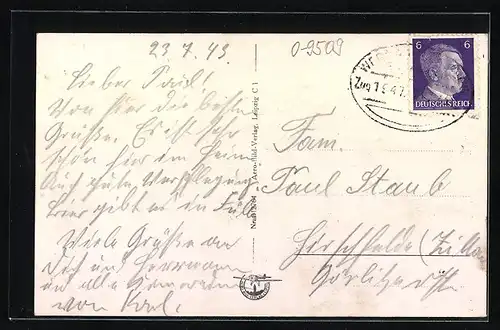 23.7.43
Lieber Paul!
Von hier die besten
Grüße. Es ist sehr
schön hier im Heim
Auch gute Verpflegung.
Bier gibt es in Fülle
Viele Grüße an
Dich und Herrmann
und alle Kameraden
von Karl.
0-9509
Aero-Bild-Verlag, Leipzig C 1
Zug 1947
6 6
DEUTSCHES REICH
Fam.
Paul Staub
Hirschfelde
Görlitzerstr